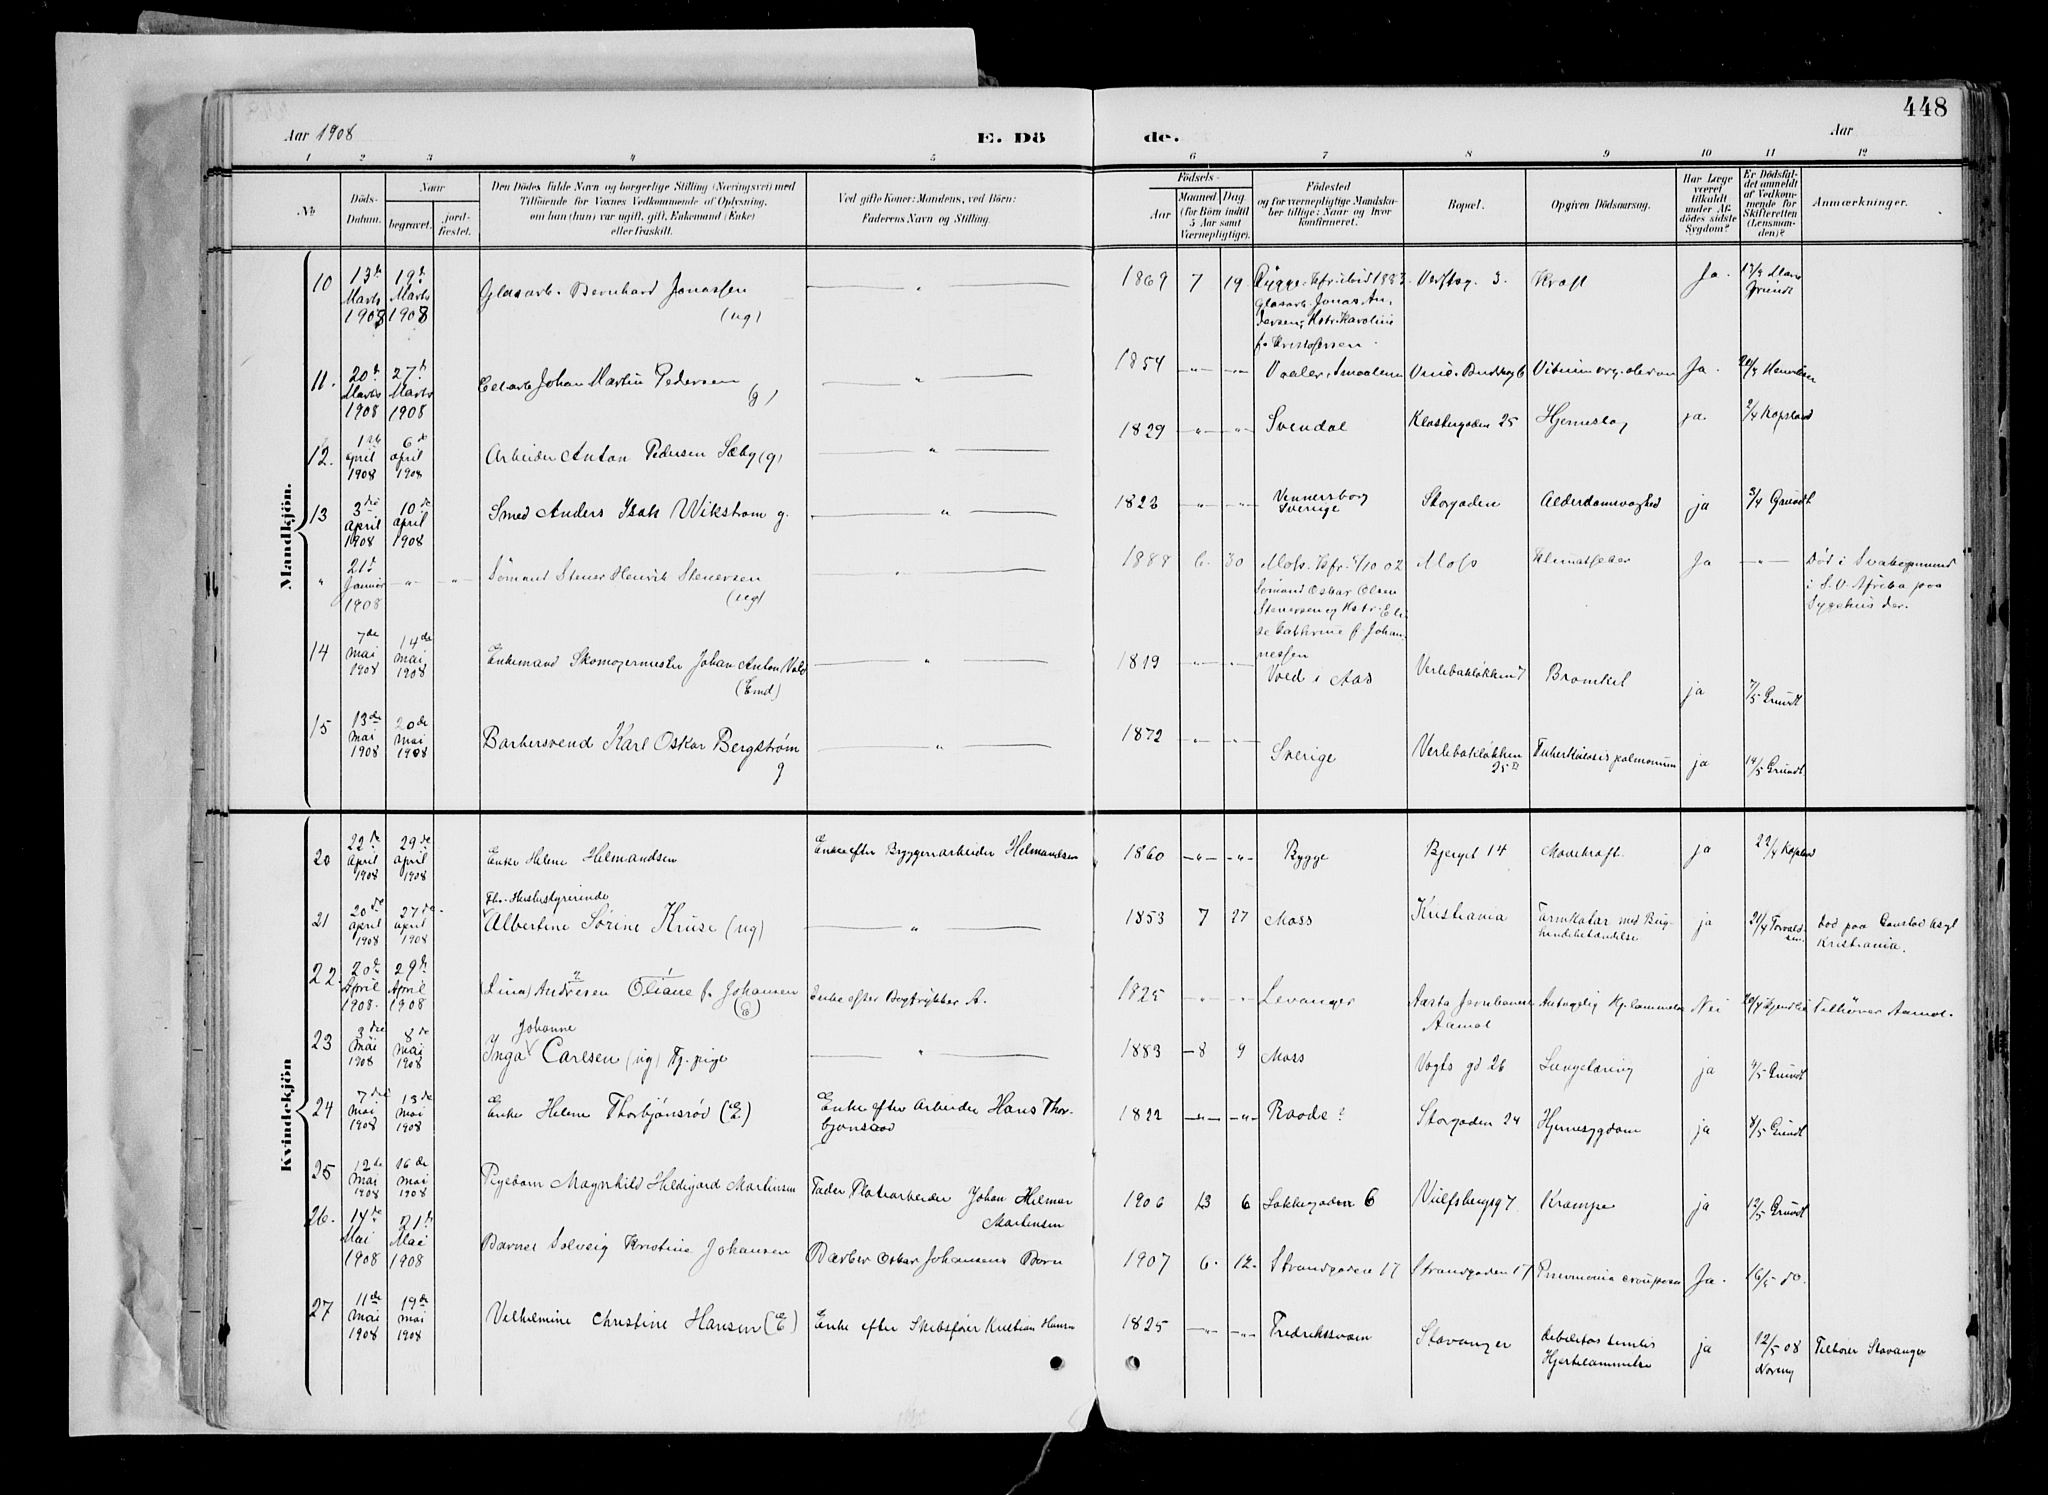 448
Aar 1908
E. Dö
de.
Aar
1 2 3 4 5 6 7 8 9 10 11 12
№
Döds-Datum.
Naar
begravet.
jord-fæstet.
Den Dödes fulde Navn og borgerlige Stilling (Næringsvei) med
Tilföiende for Voxnes Vedkommende af Oplysning,
om han (hun) var ugift, gift, Enkemand (Enke)
eller fraskilt.
Ved gifte Koner: Mandens, ved Börn:
Faderens Navn og Stilling.
Födsels-
Aar
Maaned
Dag
(for Börn indtil
5 Aar samt
Værnepligtige).
Födested
og for værnepligtige Mandska-
ber tillige: Naar og hvor
konfirmeret.
Bopæl.
Opgiven Dödsaarsag.
Har Læge
været
tilkaldt
under Af-
dödes sidste
Sygdom?
Er Dödsfal-
det anmeldt
af Vedkom-
mende for
Skifteretten
(Lensman-
den)?
Anmærkninger.
Mandkjön.
10 13de Marts 1908 19de Marts 1908 Glasarb. Bernhard Jonassen (ug) — " — 1869 7 19 Rygge. Kfr. ibid 1883. Verftsg. 3. Kræft Ja.
Glasarb. Jonas An-
dersen, Kstr. Karoline
f. Kristofersen
11. 20de Marts 1908 27de Marts 1908 Johan Martin Pedersen (g) — " — 1854 -"- -"- Vaaler, Smaalenene Vitium org. Ja.
12. 1ste April 1908 6de April 1908 Arbeider Anton Pedersen Sæby (g) — " — 1829 -"- -"- Svendal Klostergaden 25 Hjerneslag ja. 2/4 Kopstad
13 3die April 1908 10de April 1908 Smed Anders Isak Wikstrøm g. — " — 1823 " -"- Vennersborg Sverige Storgaden Alderdomsvaghed ja 3/4 Grundt
" 21de Januar 1908 -"- -"- Sømand Stener Henrik Stenersen (ug) — " — 1888 6. 30 Moss. Kfr. 5/10 02 Moss Klimatfeber Ja -"- Død i Svakopmund
i S. V. Afrika paa
Sygehus der.
Sømand Oskar Olsen
Stenersen og Kstr. Eli-
se Cathrine f. Johan-
nessen
14 7de Mai 1908 14de Mai 1908 Enkemand Skomagermester Johan Anton Vold (Emd) — " — 1819 " " Vold i Aas Verlebakløkken 7 ja 7/5 Grundt
15 13de Mai 1908 20de Mai 1908 Barbersvend Karl Oskar Bergstrøm g — " — 1872 " " Sverige Verlebakløkken 25 Tuberkulosis pulmonum ja 14/5 Grundt
Kvindekjön
20 22de April 1908 29de April 1908 Enke Helene Helmandsen Enke efter Bryggeriarbeider Helmandsen 1860 -"- -"- Rygge Bjerget 14 Mavekræft. ja 22/4 Kopstad
21 20de April 1908 27de April 1908 Fhv. Husbestyrerinde
Albertine Sørine Kruse (ug) — " — 1853 7 27 Moss Kristiania Tarmkatar med Bug-
hindebetændelse ja 21/4 Torvald-
sen. Død paa Gaustad Asyl
Kristiania.
22. 20de April 1908. 29de April 1908 (Lina) Andresen Oliane f. Johansen (E) Enke efter Bogtrykker A. 1825 " " Levanger Aasta Aamot Nei Tilhører Aamot.
23 3die Mai 1908 8de Mai 1908 Johanne
Inga Carlsen (ug) Tj. pige — " — 1883 8 9 Moss Vogts gd 26 Lungetæring ja 4/5 Grundt
24 7de Mai 1908 13de Mai 1908 Enke Helene Thorbjønsrød (E) Enke efter Arbeider Hans Thor-
bjønsrød 1822 -"- -"- Raade? Storgaden 24 Hjernesygdom ja 8/5 Grundt
25 12de Mai 1908 16de Mai 1908 Pigebarn Magnhild Hildegard Martinsen Fader Platearbeider Johan Helmer
Martinsen 1906 6 Løkkegaden 6 Vulfsbergsg 7 Krampe ja 12/5 Grundt
26. 14de Mai 1908 21de Mai 1908 Barnet Solveig Kristine Johansen Barber Oskar Johansens Barn 1907 6. 12. Strandgaden 17 Strandgaden 17 Pneumonia crouposa Ja. 16/5 do.
27 11de Mai 1908 19de Mai 1908 Vilhelmine Christine Hansen (E) Enke efter Skibsfører Kristian Hansen 1825 -"- -"- Fredriksværn Stavanger debilitas senilis
Hjertelammelse ja 12/5 08 Tilhører Stavanger